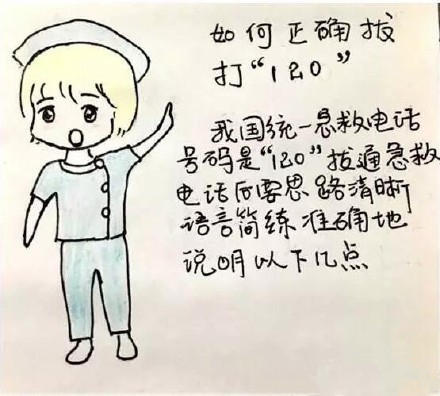 如何正确拔
打“120”
我国统一急救电话
号码是“120”拔通急救
电话后要思路清晰
语言简练准确地
说明以下几点